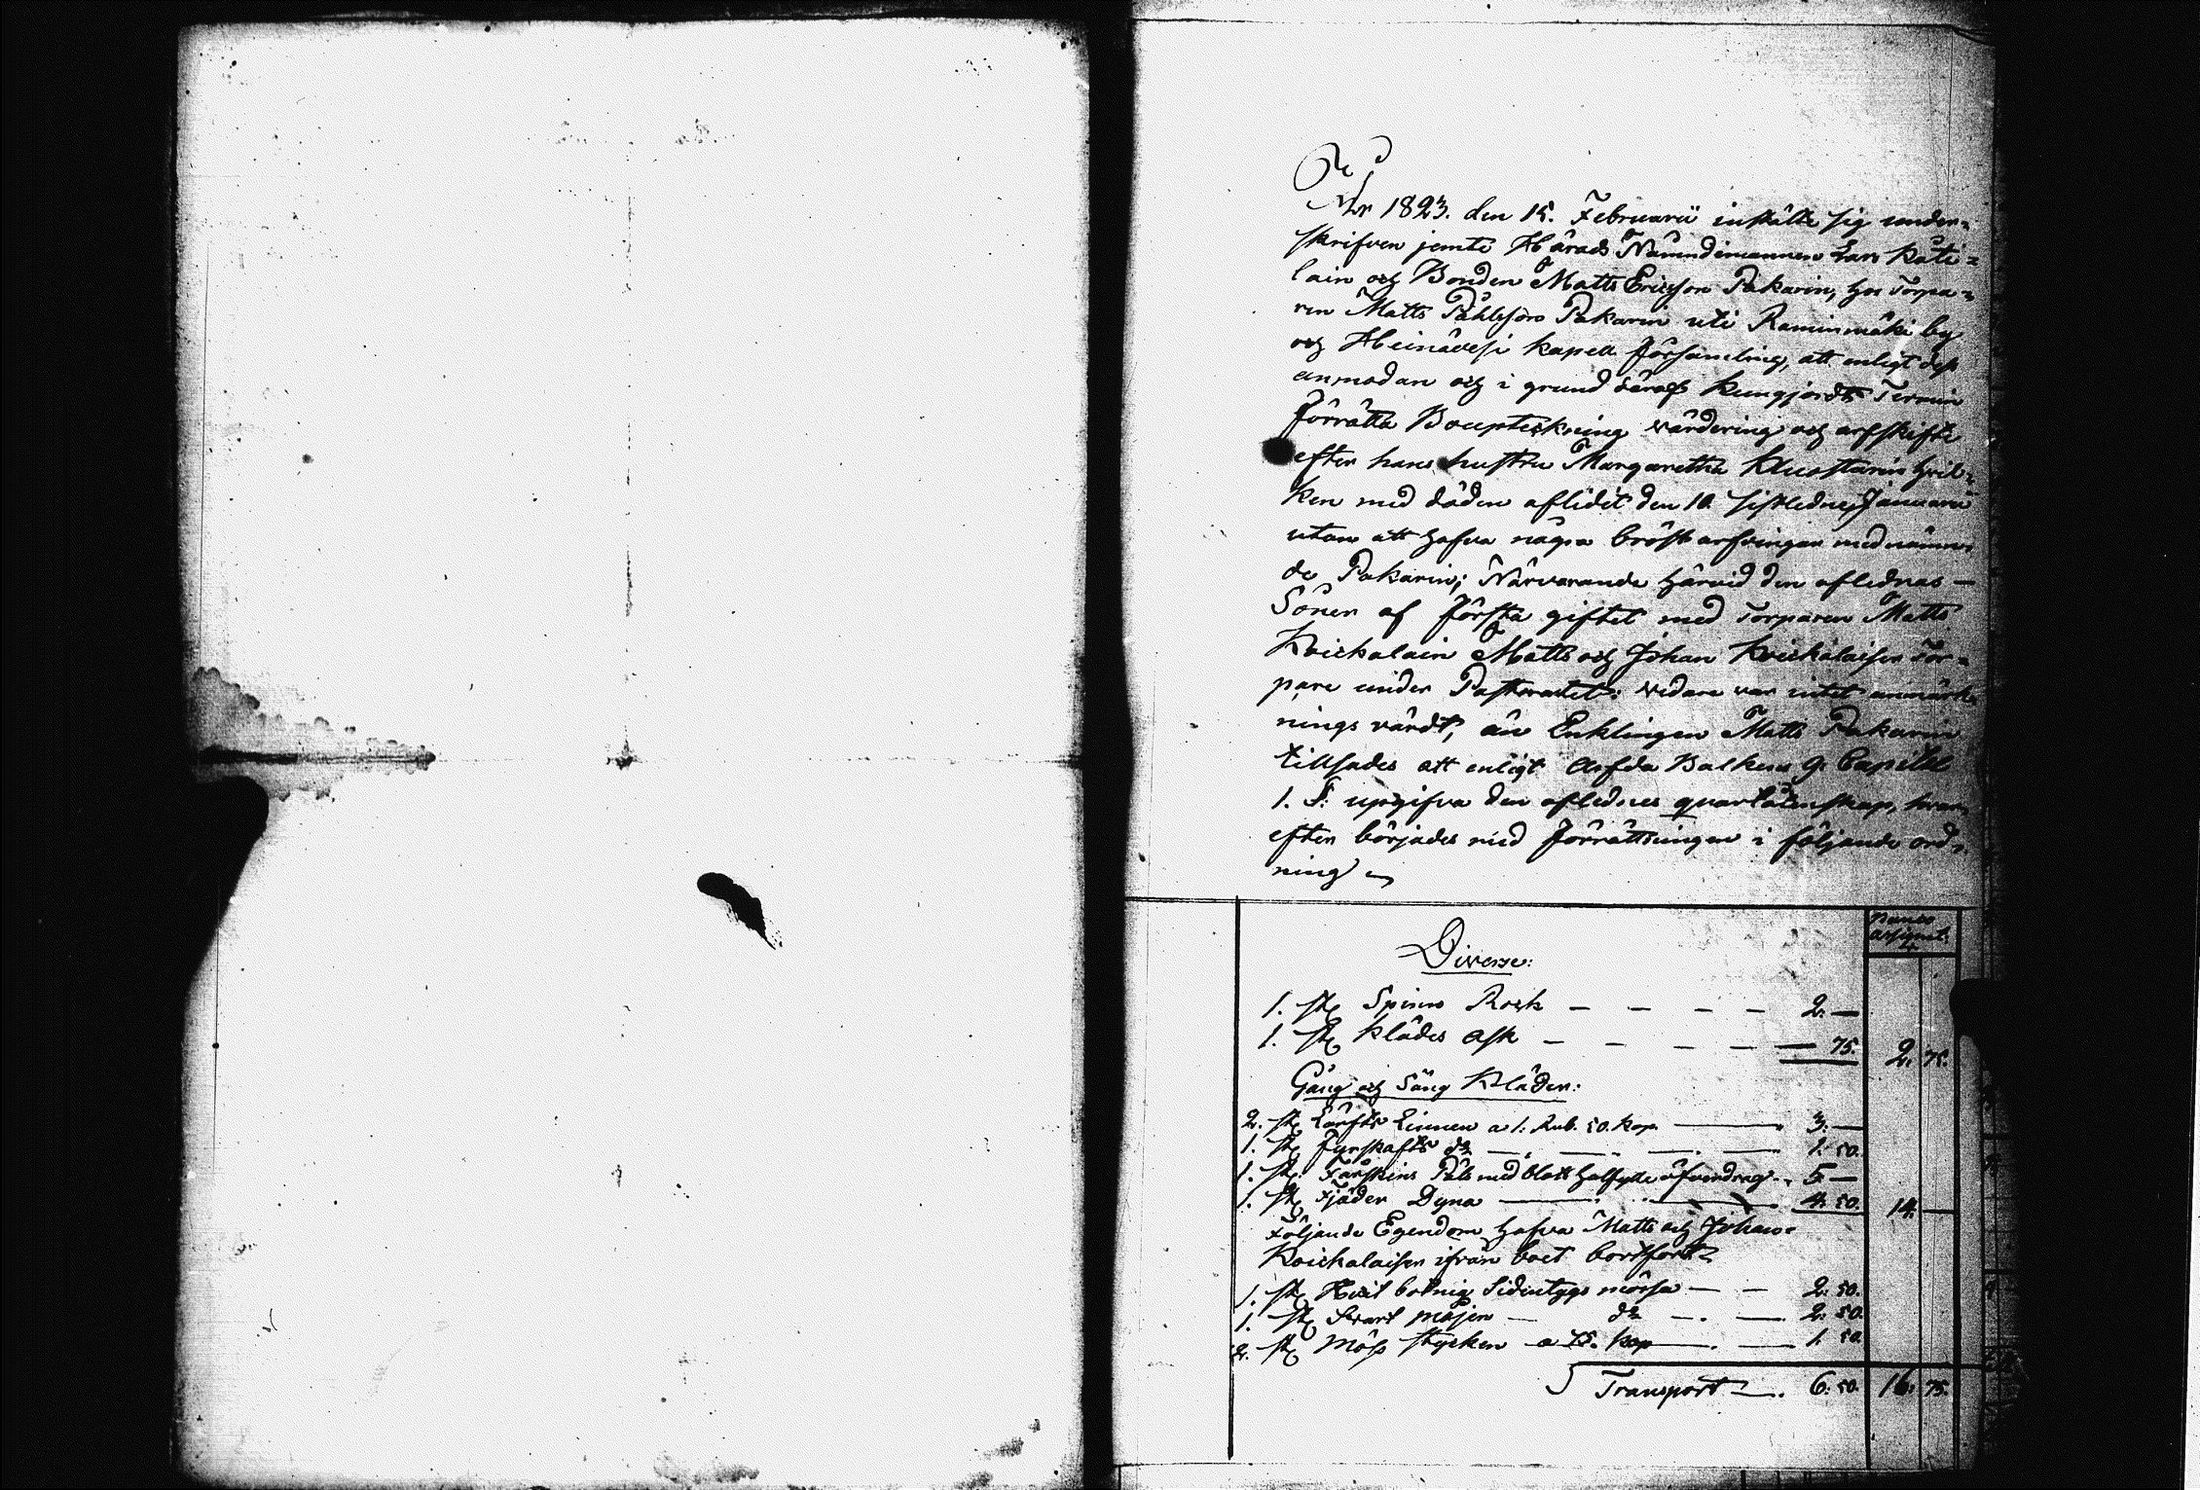 År 1823. den 15. Februarii instälte sig under-
skrifven jemte Härads Nämndemannen Lars Kåti-
lain och Bonden Matts Ericsson Pakarin, hos Torpa-
ren Matts Påhlsson Pakarin uti Raminmäki by
och Heinävesi Kapell församling, att enligt dess
anmodan och i grund däraf kungjordt Termin
förrätta Bouptekning värdering och arfskifte
efter hans hustru Margaretha Kluustarin hvil-
ken med döden aflidit den 10 sistledne Januarii
utan att hafva några bröst arfvingar med nämn-
de Pakarin; Närvarande härvid den aflednas —
Söner af första giftet med Torparen Matts
Koickalain Matts och Johan Koickalaisen Tor-
pare under Pastoratet: vidare var intet anmärk-
nings värdt, än Enklingen Matts Pakarin
tillsades att enligt Ärfda Balkens 9. Capitel
1. §: upgifva den aflednes quarlåtenskap, hvar-
efter börjades med förrättningen i följande ord-
ning
Banco
assignat:
Diverse:
1. st. Spinn Rock — — — — 2. —
1. st. Klädes Ask — — — — 75. 2. 75.
Gång och Säng Kläder:
2. st. Lärfts Linnen a 1. Rub. 50. kop. — 3. —
1. st. Fyrskafts do — — — 1. 50.
1. st. Fårskins Päls med blått halfylle öfverdrag. 5 —
1. st. Fjäder Dyna — — 4. 50. 14. —
Följande Egendom hafva Matts och Johan
Koickalaisen ifrån boet bortfört
1. st. Hvit botnig Sidentygs mössa — — 2. 50.
1. st. Svart do — 2. 50.
2. st. Möss stycken a 75. kop — 1. 50.
Transport — 6. 50. 16. 75.